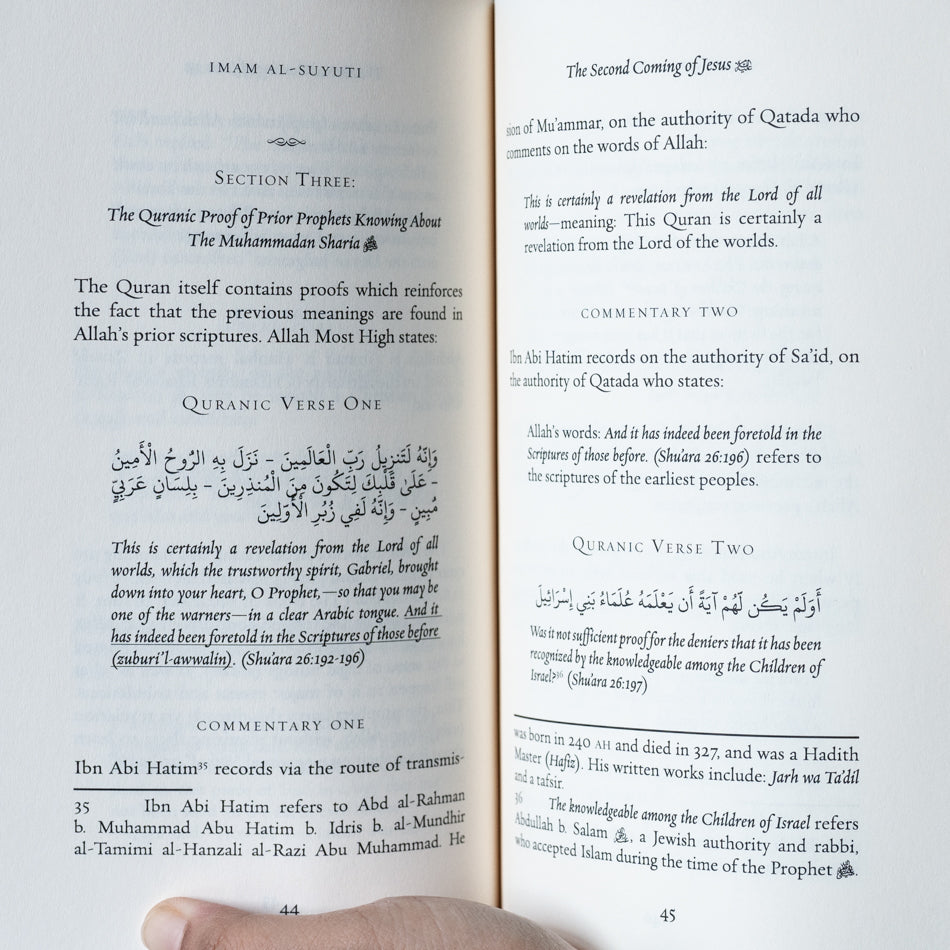 IMAM AL-SUYUTI
SECTION THREE:
The Quranic Proof of Prior Prophets Knowing About
The Muhammadan Sharia ﷺ
The Quran itself contains proofs which reinforces
the fact that the previous meanings are found in
Allah's prior scriptures. Allah Most High states:
QURANIC VERSE ONE
وَإِنَّهُ لَتَنزِيلُ رَبِّ الْعَالَمِينَ – نَزَلَ بِهِ الرُّوحُ الْأَمِينُ
– عَلَىٰ قَلْبِكَ لِتَكُونَ مِنَ الْمُنذِرِينَ – بِلِسَانٍ عَرَبِيٍّ
مُّبِينٍ – وَإِنَّهُ لَفِي زُبُرِ الْأَوَّلِينَ
This is certainly a revelation from the Lord of all
worlds, which the trustworthy spirit, Gabriel, brought
down into your heart, O Prophet,—so that you may be
one of the warners—in a clear Arabic tongue. And it
has indeed been foretold in the Scriptures of those before
(zuburi'l-awwalin). (Shu'ara 26:192-196)
COMMENTARY ONE
Ibn Abi Hatim35 records via the route of transmis-
35 Ibn Abi Hatim refers to Abd al-Rahman
b. Muhammad Abu Hatim b. Idris b. al-Mundhir
al-Tamimi al-Hanzali al-Razi Abu Muhammad. He
44
The Second Coming of Jesus
sion of Mu'ammar, on the authority of Qatada who
comments on the words of Allah:
This is certainly a revelation from the Lord of all
worlds—meaning: This Quran is certainly a
revelation from the Lord of the worlds.
COMMENTARY TWO
Ibn Abi Hatim records on the authority of Sa'id, on
the authority of Qatada who states:
Allah's words: And it has indeed been foretold in the
Scriptures of those before. (Shu'ara 26:196) refers to
the scriptures of the earliest peoples.
QURANIC VERSE TWO
أَوَلَمْ يَكُن لَّهُمْ آيَةً أَن يَعْلَمَهُ عُلَمَاءُ بَنِي إِسْرَائِيلَ
Was it not sufficient proof for the deniers that it has been
recognized by the knowledgeable among the Children of
Israel?36 (Shu'ara 26:197)
was born in 240 AH and died in 327, and was a Hadith
Master (Hafiz). His written works include: Jarh wa Ta'dil
and a tafsir.
36 The knowledgeable among the Children of Israel refers
Abdullah b. Salam, a Jewish authority and rabbi,
who accepted Islam during the time of the Prophet ﷺ.
45